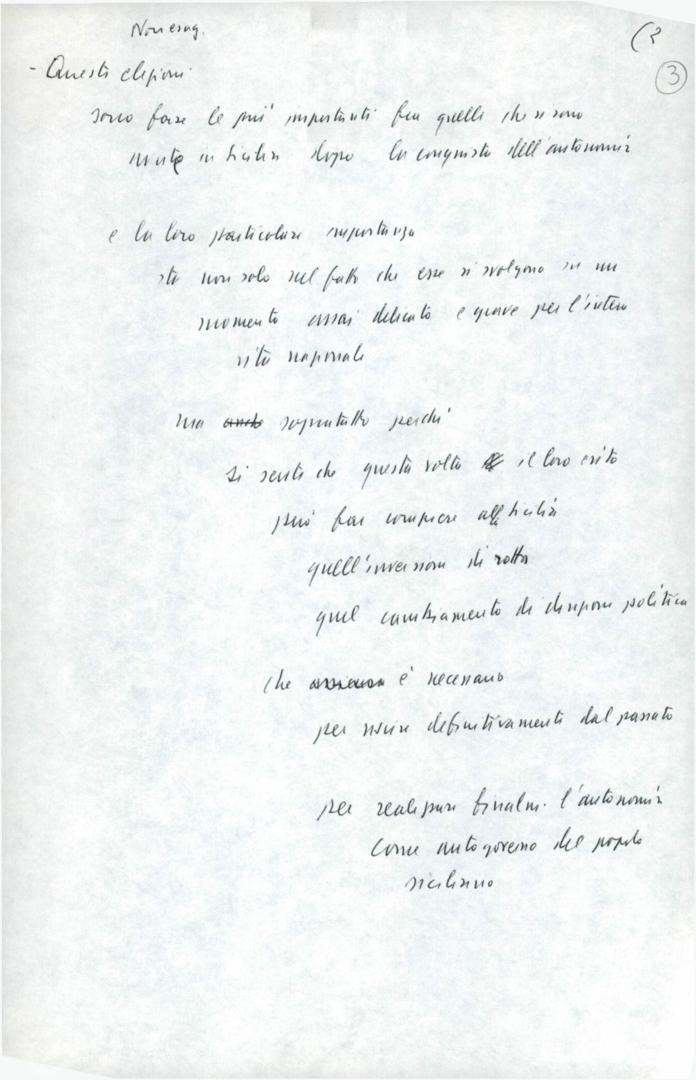 Non esag.
(2
3
- Queste elezioni
sono forse le più importanti fra quelle che si sono
avute in Sicilia dopo la conquista dell'autonomia
e la loro particolare importanza
sta non solo nel fatto che esse si svolgono in un
momento assai delicato e grave per l'intera
vita nazionale
ma anche soprattutto perché
si sente che questa volta il loro esito
può far compiere alla Sicilia
quell'inversione di rotta
quel cambiamento di direzione politica
che è necessario
per uscire definitivamente dal passato
per realizzare finalm. l'autonomia
come autogoverno del popolo
siciliano